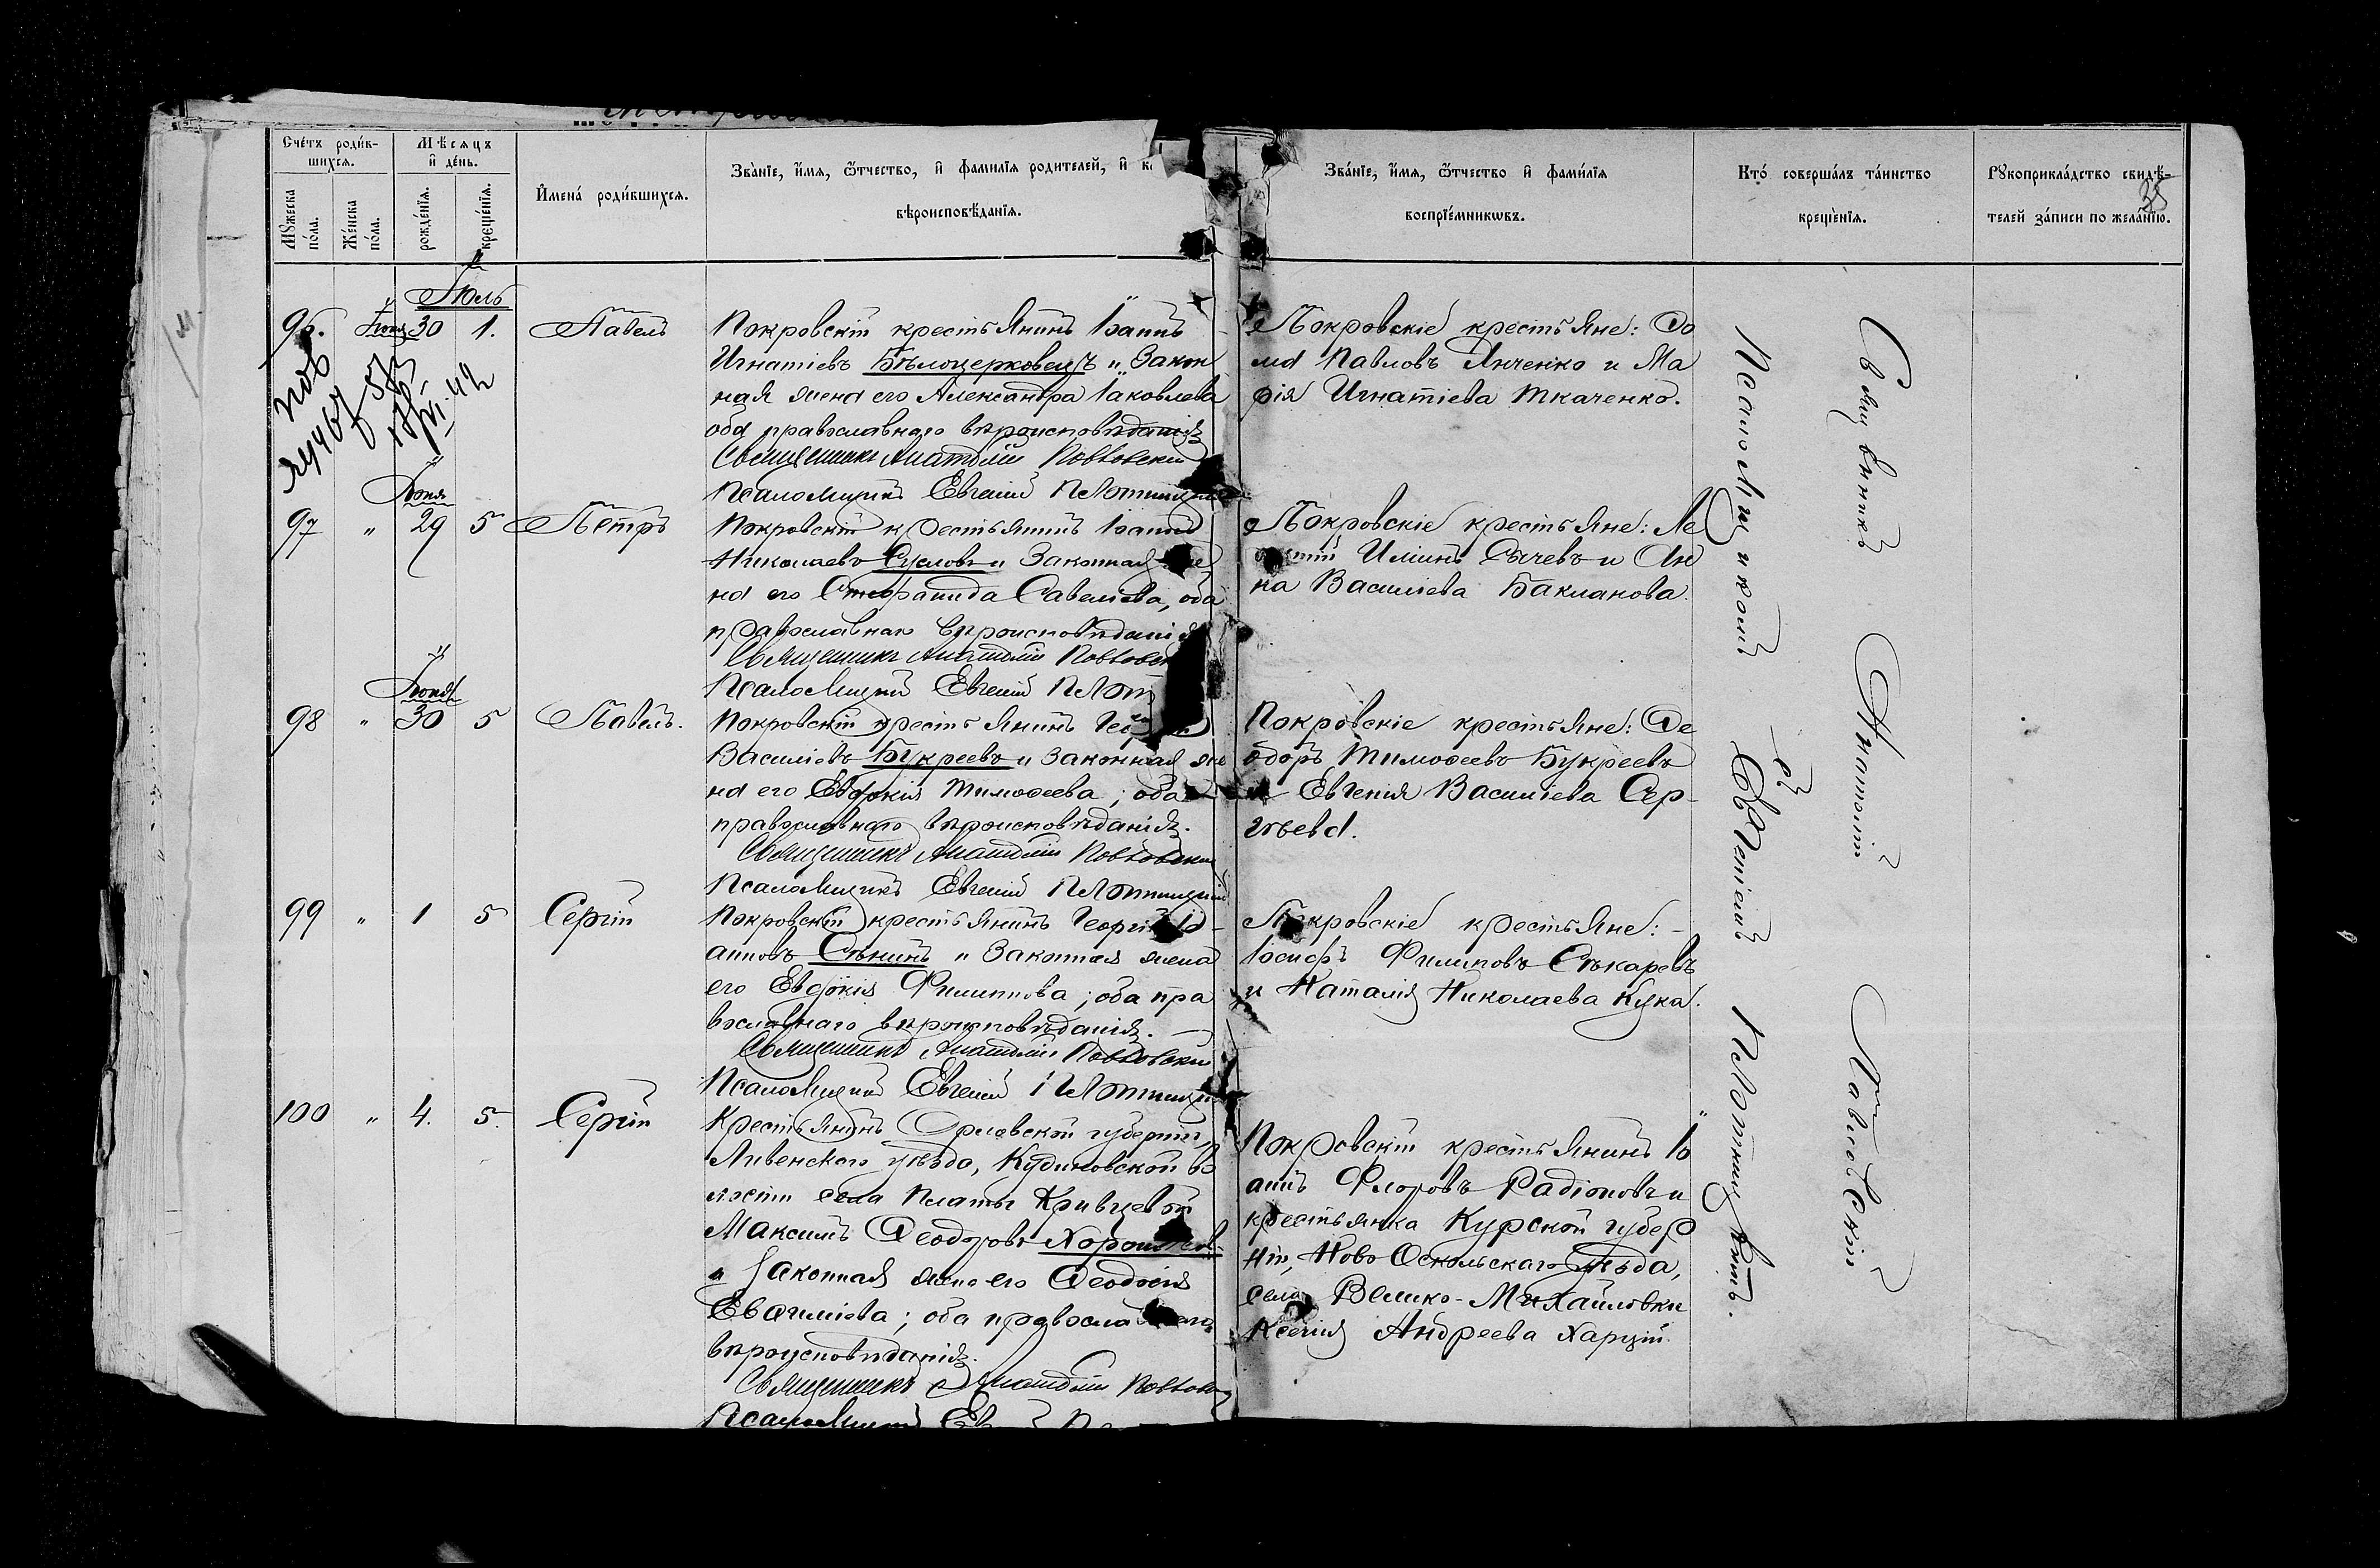 Счетъ родив-
шихся.
Мѣсяцъ
и день.
Мужеска
пола.
Женска
пола.
рожденія.
крещенія.
Имена родившихся.
Званіе, имя, отчество, и фамилія родителей, и
вѣроисповѣданія.
Званіе, имя, отчество и фамилія
воспріемниковъ.
Кто совершалъ таинство
крещенія.
Рукоприкладство свидѣ-
телей записи по желанію.
35
Іюль
96. Іюня 30 1. Павелъ
Покровскій крестьянинъ Іоаннъ
Игнатіевъ Бѣлоцерковецъ и Закон
ная жена его Александра Іаковлева
оба православнаго вѣроисповѣданія
Священникъ Анатолій
Псаломщикъ Евгеній
Покровскіе крестьяне: Ѳо
ма Павловъ Янченко и Ма
рія Игнатіева Ткаченко.
Іюня
97 " 29 5 Петръ
Покровскій крестьянинъ Іоаннъ
Николаевъ Сусловъ и Законная же
на его Стефанида Савеліева, оба
православнаго вѣроисповѣданія
Священникъ Анатолій
Псаломщикъ Евгеній
Покровскіе крестьяне: Ле
Илиинъ Сычевъ и Ан
на Василіева Бакланова.
Іюня
98 " 30 5 Павелъ.
Покровскій крестьянинъ
Василіевъ Букреевъ и законная же
на его Евдокія Тимоѳеева; оба
православнаго вѣроисповѣданія.
Священникъ Анатолій
Псаломщикъ Евгеній
Покровскіе крестьяне: Ѳе
одоръ Тимоѳеевъ Букреевъ
и Евгенія Василіева Сер-
гѣева.
99 " 1 5 Сергій
Покровскій крестьянинъ Георгій Іо-
анновъ Сѣнинъ и Законная жена
его Евдокія Филиппова; оба пра
вославнаго вѣроисповѣданія.
Священникъ Анатолій
Псаломщикъ Евгеній
Покровскіе крестьяне:
Іосифъ Филиповъ Сѣкаревъ
и Наталія Николаева Кука.
100 " 4. 5. Сергій
Крестьянинъ Орловской губерніи,
Ливенскаго уѣзда, Кудиновской во
лости села Платы Кривцевой
Максимъ Ѳеодоровъ
и Законная жена его Ѳеодосія
Евѳиміева; оба православнаго
вѣроисповѣданія.
Священникъ Анатолій
Псаломщикъ
Покровскій крестьянинъ Іо
аннъ Флоровъ Радіоновъ и
крестьянка Курской губер
ніи, Ново Оскольскаго уѣзда,
села Велико-Михайловки
Ксенія Андреева Харцій
Священникъ Анатолій
Псаломщикомъ съ Евгеніемъ